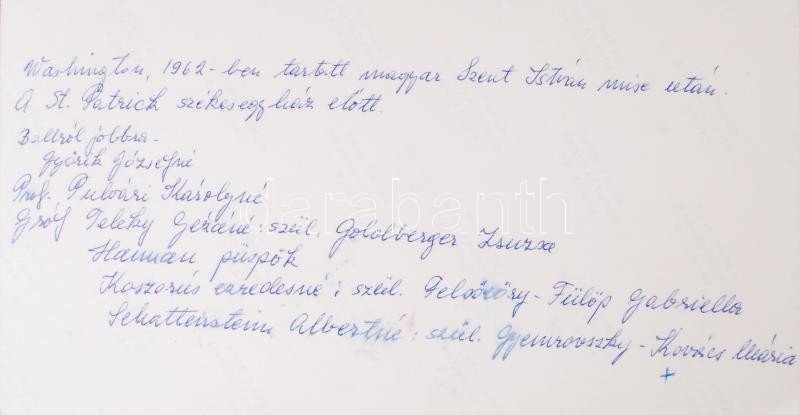 Washington, 1962-ben tartott magyar Szent István mise után.
A St. Patrick székesegyház előtt.
Balról jobbra.
Györik Józsefné
Prof. Pulvári Károlyné
Gróf Teleky Gézáné szül. Goldberger Zsuzsa
Hannan püspök
Koszorús ezredesné: szül. Felsőőry-Fülöp Gabriella
Schattenstein Albertné: szül. Kovács Mária
+
darabanth